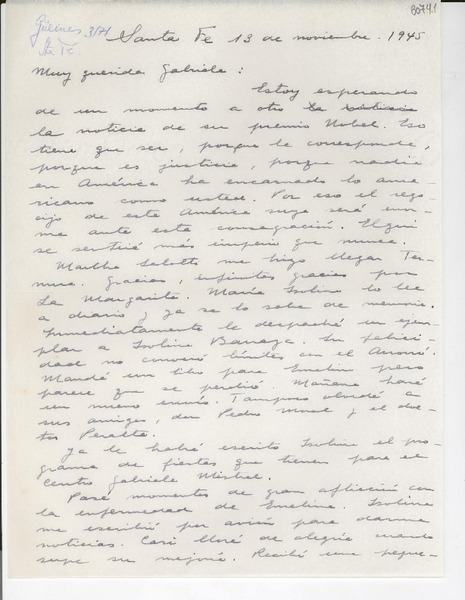 86741
3/71
Sta Fe.
Santa Fe 13 de noviembre. 1945
Muy querida Gabriela:
Estoy esperando
de un momento a otro la noticia
la noticia de su premio Nobel. Eso
tiene que ser, porque le corresponde,
porque es justicia, porque nadie
en América ha encarnado lo ame-
ricano como usted. Por eso el rego-
cijo de esta América suya será enor-
me ante esta consagración. Elqui
se sentirá más imperio que nunca.
Martha Salotti me hizo llegar Ter-
nura. Gracias, infinitas gracias por
La Margarita. María Isolina lo lee
a diario y ya se lo sabe de memoria.
Inmediatamente le despaché un ejem-
plar a Isolina Barraza. Su felici-
dad no conoció límites con el
Mandé un libro para Emelina pero
parece que se perdió. Mañana haré
un nuevo envío. Tampoco olvidé a
sus amigos, don Pedro Moral y el doc-
tor Peralta.
Ya le habrá escrito Isolina el pro-
grama de fiestas que tienen para el
Centro Gabriela Mistral.
Pasé momentos de gran aflicción con
la enfermedad de Emelina. Isolina
me escribió por avión para darme
noticias. Casi lloré de alegría cuando
supe su mejoría. Recibí una peque-